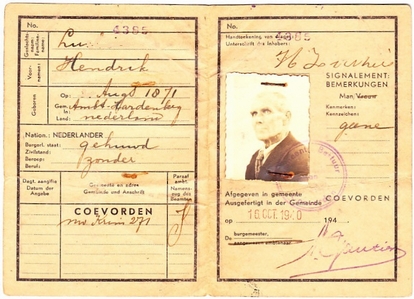 No.
4385
Geslachts-
naam:
Familien-
name:
Voor-
namen:
Hendrik
Geboren
Op:
Augs 1871
Gem.:
Ambt-Hardenberg
Land:
nederland
Nation.: NEDERLANDER
Burgerl. staat:
Zivilstand:
gehuwd
Beroep:
Beruf:
zonder
Dagt. aangifte
Datum der
Angabe
Gemeente en adres
Gemeinde und Anschrift
Paraaf
ambt.
Namens-
zug des
Beamten
COEVORDEN
271
No.
4385
Handteekening van
Unterschrift des Inhabers:
SIGNALEMENT:
BEMERKUNGEN
Man, Vrouw
Kenmerken:
Kennzeichen:
geene
Afgegeven in gemeente
Ausgefertigt in der Gemeinde
COEVORDEN
op
16 OCT. 1940
194
burgemeester,
De